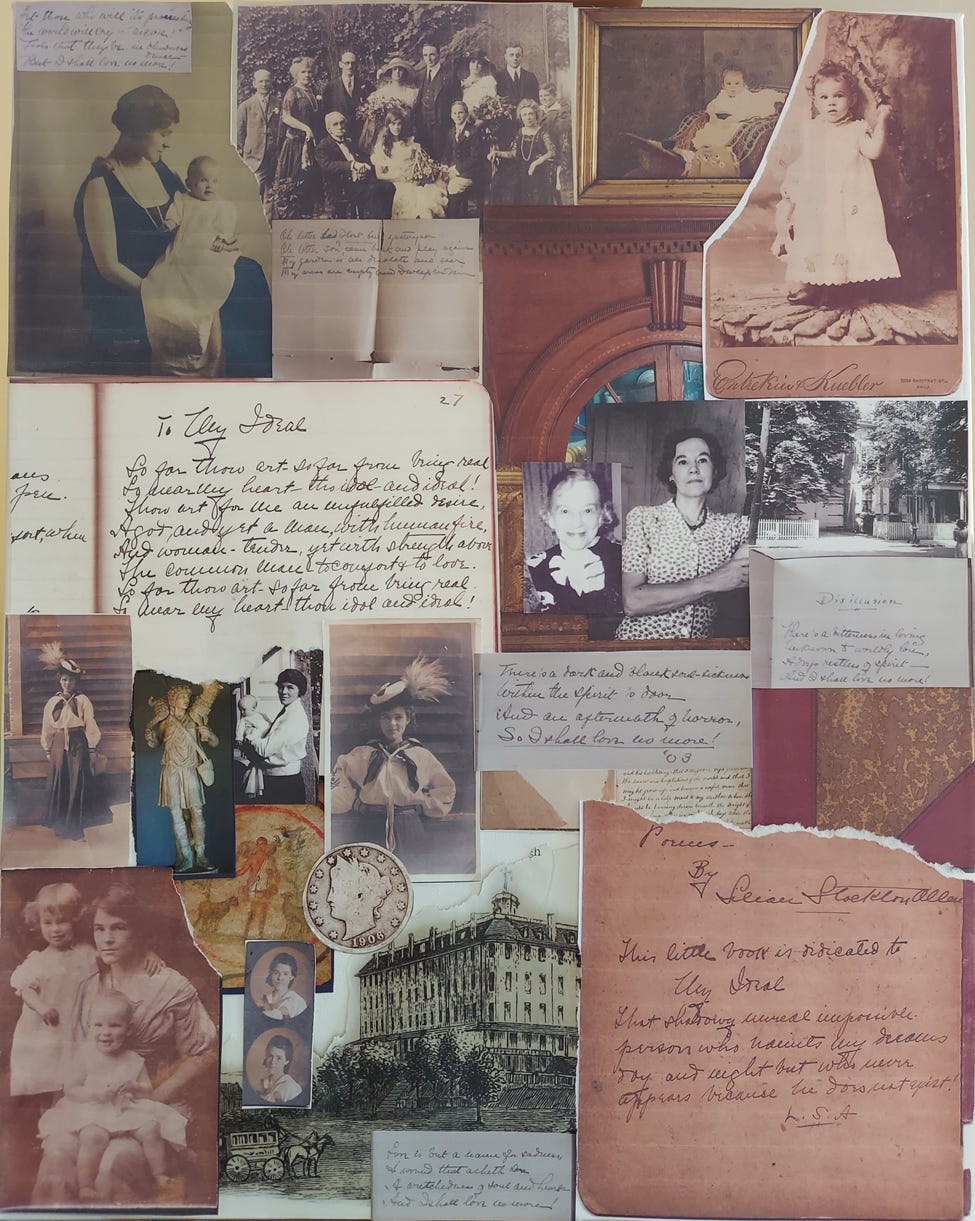 thou who will its praises
the world will cry - "above!"
Fools that they be in blindness
But I shall love no more!
Oh little lad I lost but yesteryear
Oh little son come back and play again
My garden is all desolate and sear
My arms are empty and
27
To My Ideal
So far thou art - so far from being real
So near my heart - thou idol and ideal!
Thou art for me an unfulfilled desire,
A god, and yet a man, with human fire,
And woman - tender, yet with strength above
The common man to comfort & to love.
So far thou art - so far from being real.
So near my heart thou idol and ideal!
when
Entrekin & Kuebler
CHESTNUT ST.,
PHILA.
Disillusion
There's a bitterness in loving
unknown to worldly love,
A deep restless of spirit -
And I shall love no more!
There's a dark and black soul-sickness
Within the spirit's door
And an aftermath of horror,
So I shall love no more!
'03
1906
gh
Poems -
By
Lilian Stockton Allen
This little book is dedicated to
My Ideal
That shadowy unreal impossible
person who haunts my dreams
day and night but who never
appears because he does not exist!
L. S. A
Love is but a name for sadness
A wound that acheth
A wretchedness of soul and heart
And I shall love no more!